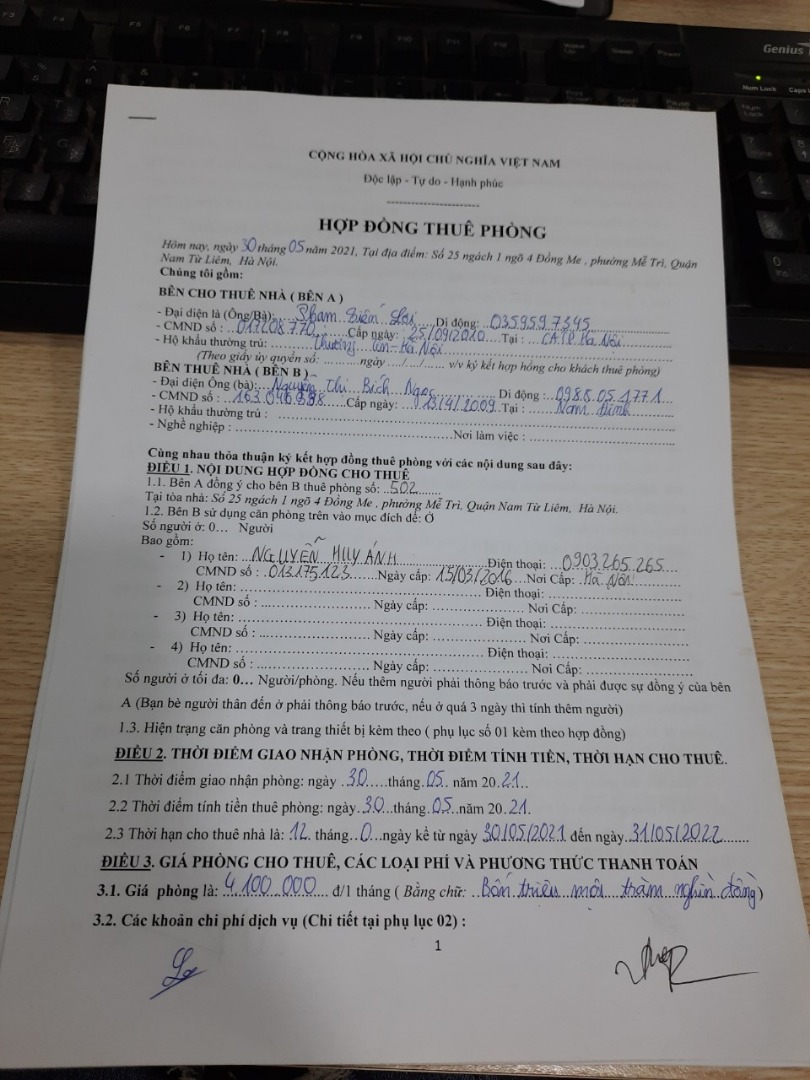 Genius
Num Lock Caps
CỘNG HÒA XÃ HỘI CHỦ NGHĨA VIỆT NAM
Độc lập - Tự do - Hạnh phúc
HỢP ĐỒNG THUÊ PHÒNG
Hôm nay, ngày 30 tháng 05 năm 2021, Tại địa điểm: Số 25 ngách 1 ngõ 4 Đồng Me , phường Mễ Trì, Quận
Nam Từ Liêm, Hà Nội.
Chúng tôi gồm:
BÊN CHO THUÊ NHÀ ( BÊN A )
- Đại diện là (Ông/Bà): Phạm Tiến Di động: 035959 7395
- CMND số : 017208770 Cấp ngày: 25/09/2010 Tại : CATP Hà Nội
- Hộ khẩu thường trú: Thường Tín - Hà Nội
(Theo giấy ủy quyền số: ... ngày .../.../...... v/v ký kết hợp hồng cho khách thuê phòng)
BÊN THUÊ NHÀ ( BÊN B )
- Đại diện Ông (bà): Nguyễn Thị Bích Ngọc Di động : 0988.05.1771
- CMND số : Cấp ngày: Tại : Nam Định
- Hộ khẩu thường trú : ........
- Nghề nghiệp : ........ Nơi làm việc : ........
Cùng nhau thỏa thuận ký kết hợp đồng thuê phòng với các nội dung sau đây:
ĐIỀU 1. NỘI DUNG HỢP ĐỒNG CHO THUÊ
1.1. Bên A đồng ý cho bên B thuê phòng số: 502
Tại tòa nhà: Số 25 ngách 1 ngõ 4 Đồng Me , phường Mễ Trì, Quận Nam Từ Liêm, Hà Nội.
1.2. Bên B sử dụng căn phòng trên vào mục đích để: Ở
Số người ở: 0… Người
Bao gồm:
- 1) Họ tên: NGUYỄN HUY ÁNH Điện thoại: 0903.265.265
CMND số : 013175123 Ngày cấp: 15/03/2016 Nơi Cấp: Hà Nội
- 2) Họ tên: ........ Điện thoại: ........
CMND số : ........ Ngày cấp: ........ Nơi Cấp: ........
- 3) Họ tên: ........ Điện thoại: ........
CMND số : ........ Ngày cấp: ........ Nơi Cấp: ........
- 4) Họ tên: ........ Điện thoại: ........
CMND số : ........ Ngày cấp: ........ Nơi Cấp: ........
Số người ở tối đa: 0… Người/phòng. Nếu thêm người phải thông báo trước và phải được sự đồng ý của bên
A (Bạn bè người thân đến ở phải thông báo trước, nếu ở quá 3 ngày thì tính thêm người)
1.3. Hiện trạng căn phòng và trang thiết bị kèm theo ( phụ lục số 01 kèm theo hợp đồng)
ĐIỀU 2. THỜI ĐIỂM GIAO NHẬN PHÒNG, THỜI ĐIỂM TÍNH TIỀN, THỜI HẠN CHO THUÊ.
2.1 Thời điểm giao nhận phòng: ngày 30 tháng 05 năm 20 21
2.2 Thời điểm tính tiền thuê phòng: ngày 30 tháng 05 năm 20 21
2.3 Thời hạn cho thuê nhà là: 12 tháng 0 ngày kể từ ngày 30/05/2021 đến ngày 31/05/2022
ĐIỀU 3. GIÁ PHÒNG CHO THUÊ, CÁC LOẠI PHÍ VÀ PHƯƠNG THỨC THANH TOÁN
3.1. Giá phòng là: 4.100.000 đ/1 tháng ( Bằng chữ: Bốn triệu một trăm nghìn đồng )
3.2. Các khoản chi phí dịch vụ (Chi tiết tại phụ lục 02) :
1